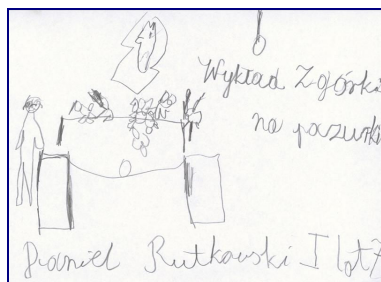 Wykład Zgórki
na pazurki
Daniel Rutkowski I lat 7